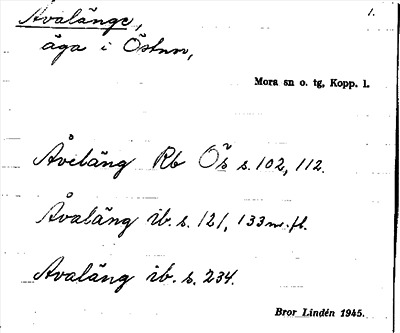 Åvalänge, 1.
äga i Östnor,
Mora sn o. tg, Kopp. l.
Åveläng Rb Ös s. 102, 112.
Åvaläng ib. s. 121, 133 m. fl.
Avaläng ib. s. 234.
Bror Lindén 1945.